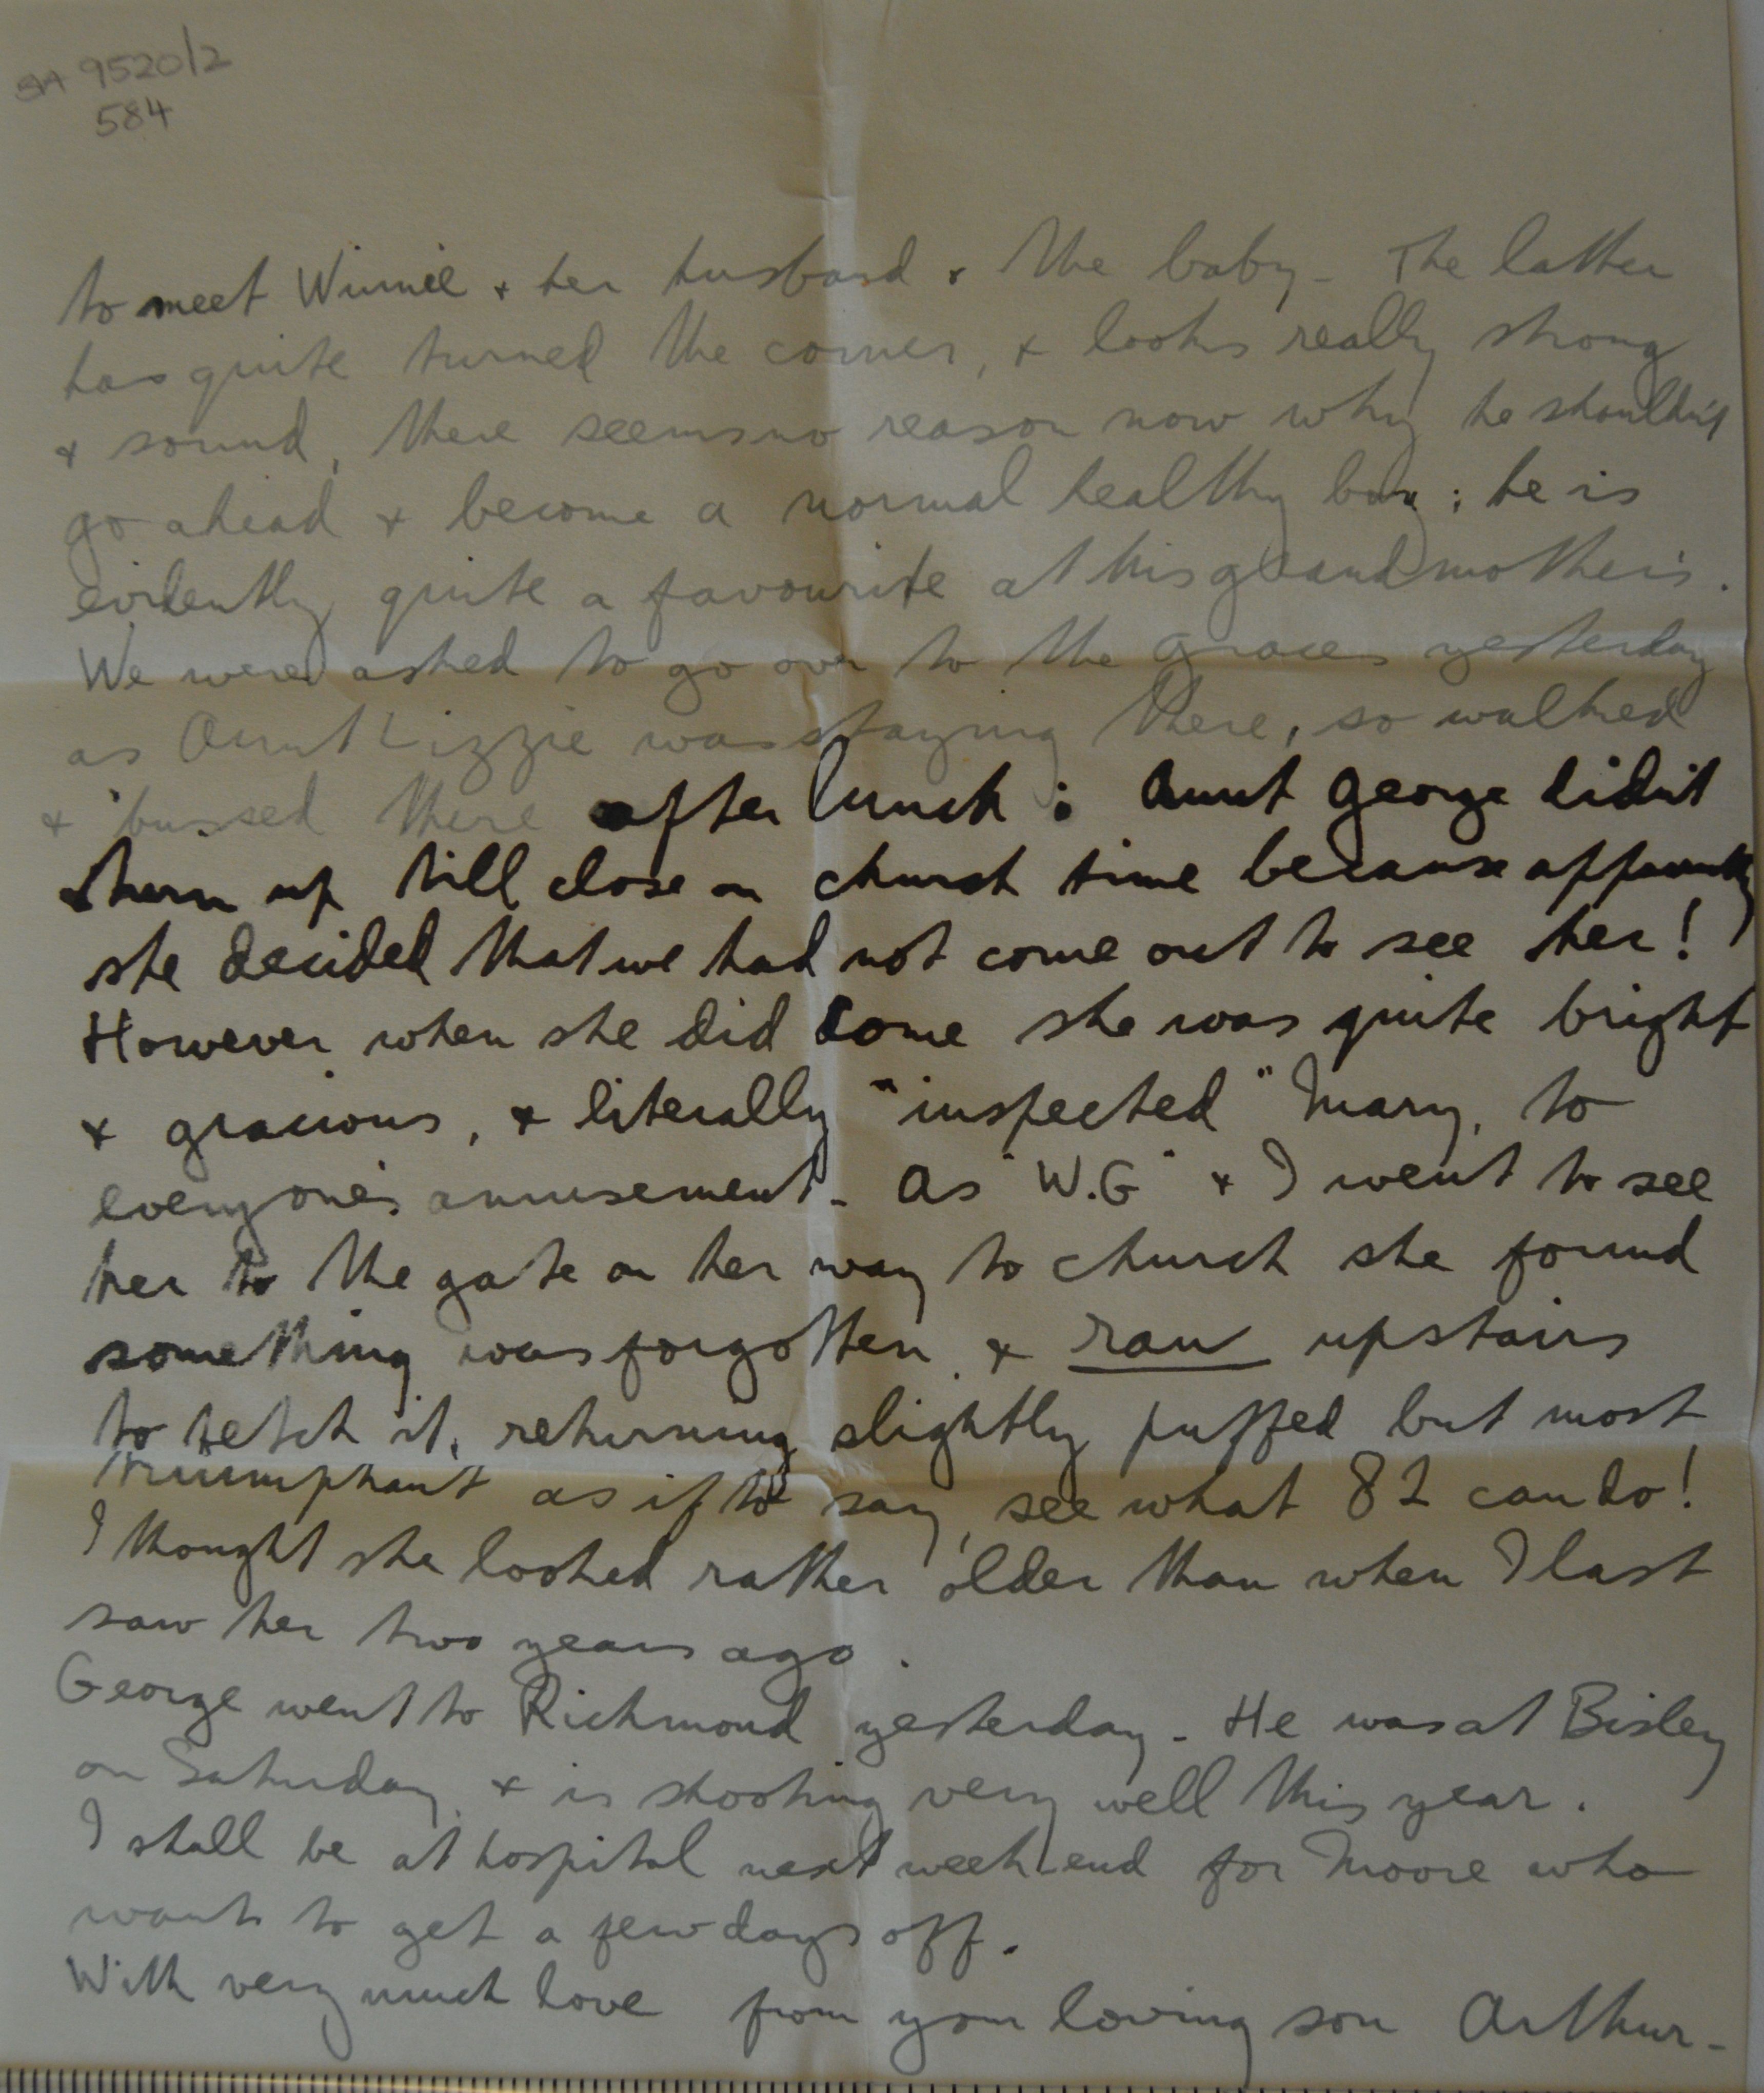 SA 9520/2
584
to meet Winnie & her husband & the baby - The latter
has quite turned the corner, & looks really strong
& sound, there seems no reason now why he shouldn't
go ahead & become a normal healthy boy ; he is
evidently quite a favourite at his grandmother's.
We were asked to go over to the Graces yesterday
as Aunt Lizzie was staying there, so walked
& 'bussed there after lunch : Aunt George didn't
turn up till close on church time because apparently
she decided that we had not come out to see her!
However when she did come she was quite bright
& gracious, & literally "inspected" Mary, to
everyone's amusement - As "W.G" & I went to see
her to the gate on her way to church she found
something was forgotten & ran upstairs
to fetch it, returning slightly puffed but most
triumphant as if to say, see what 82 can do!
I thought she looked rather older than when I last
saw her two years ago.
George went to Richmond yesterday - He was at Bisley
on Saturday, & is shooting very well this year.
I shall be at hospital next week-end for Moore who
wants to get a few days off.
With very much love from your loving son Arthur -